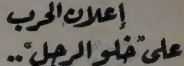 إعلان الحرب
على "خلو الرجل"..